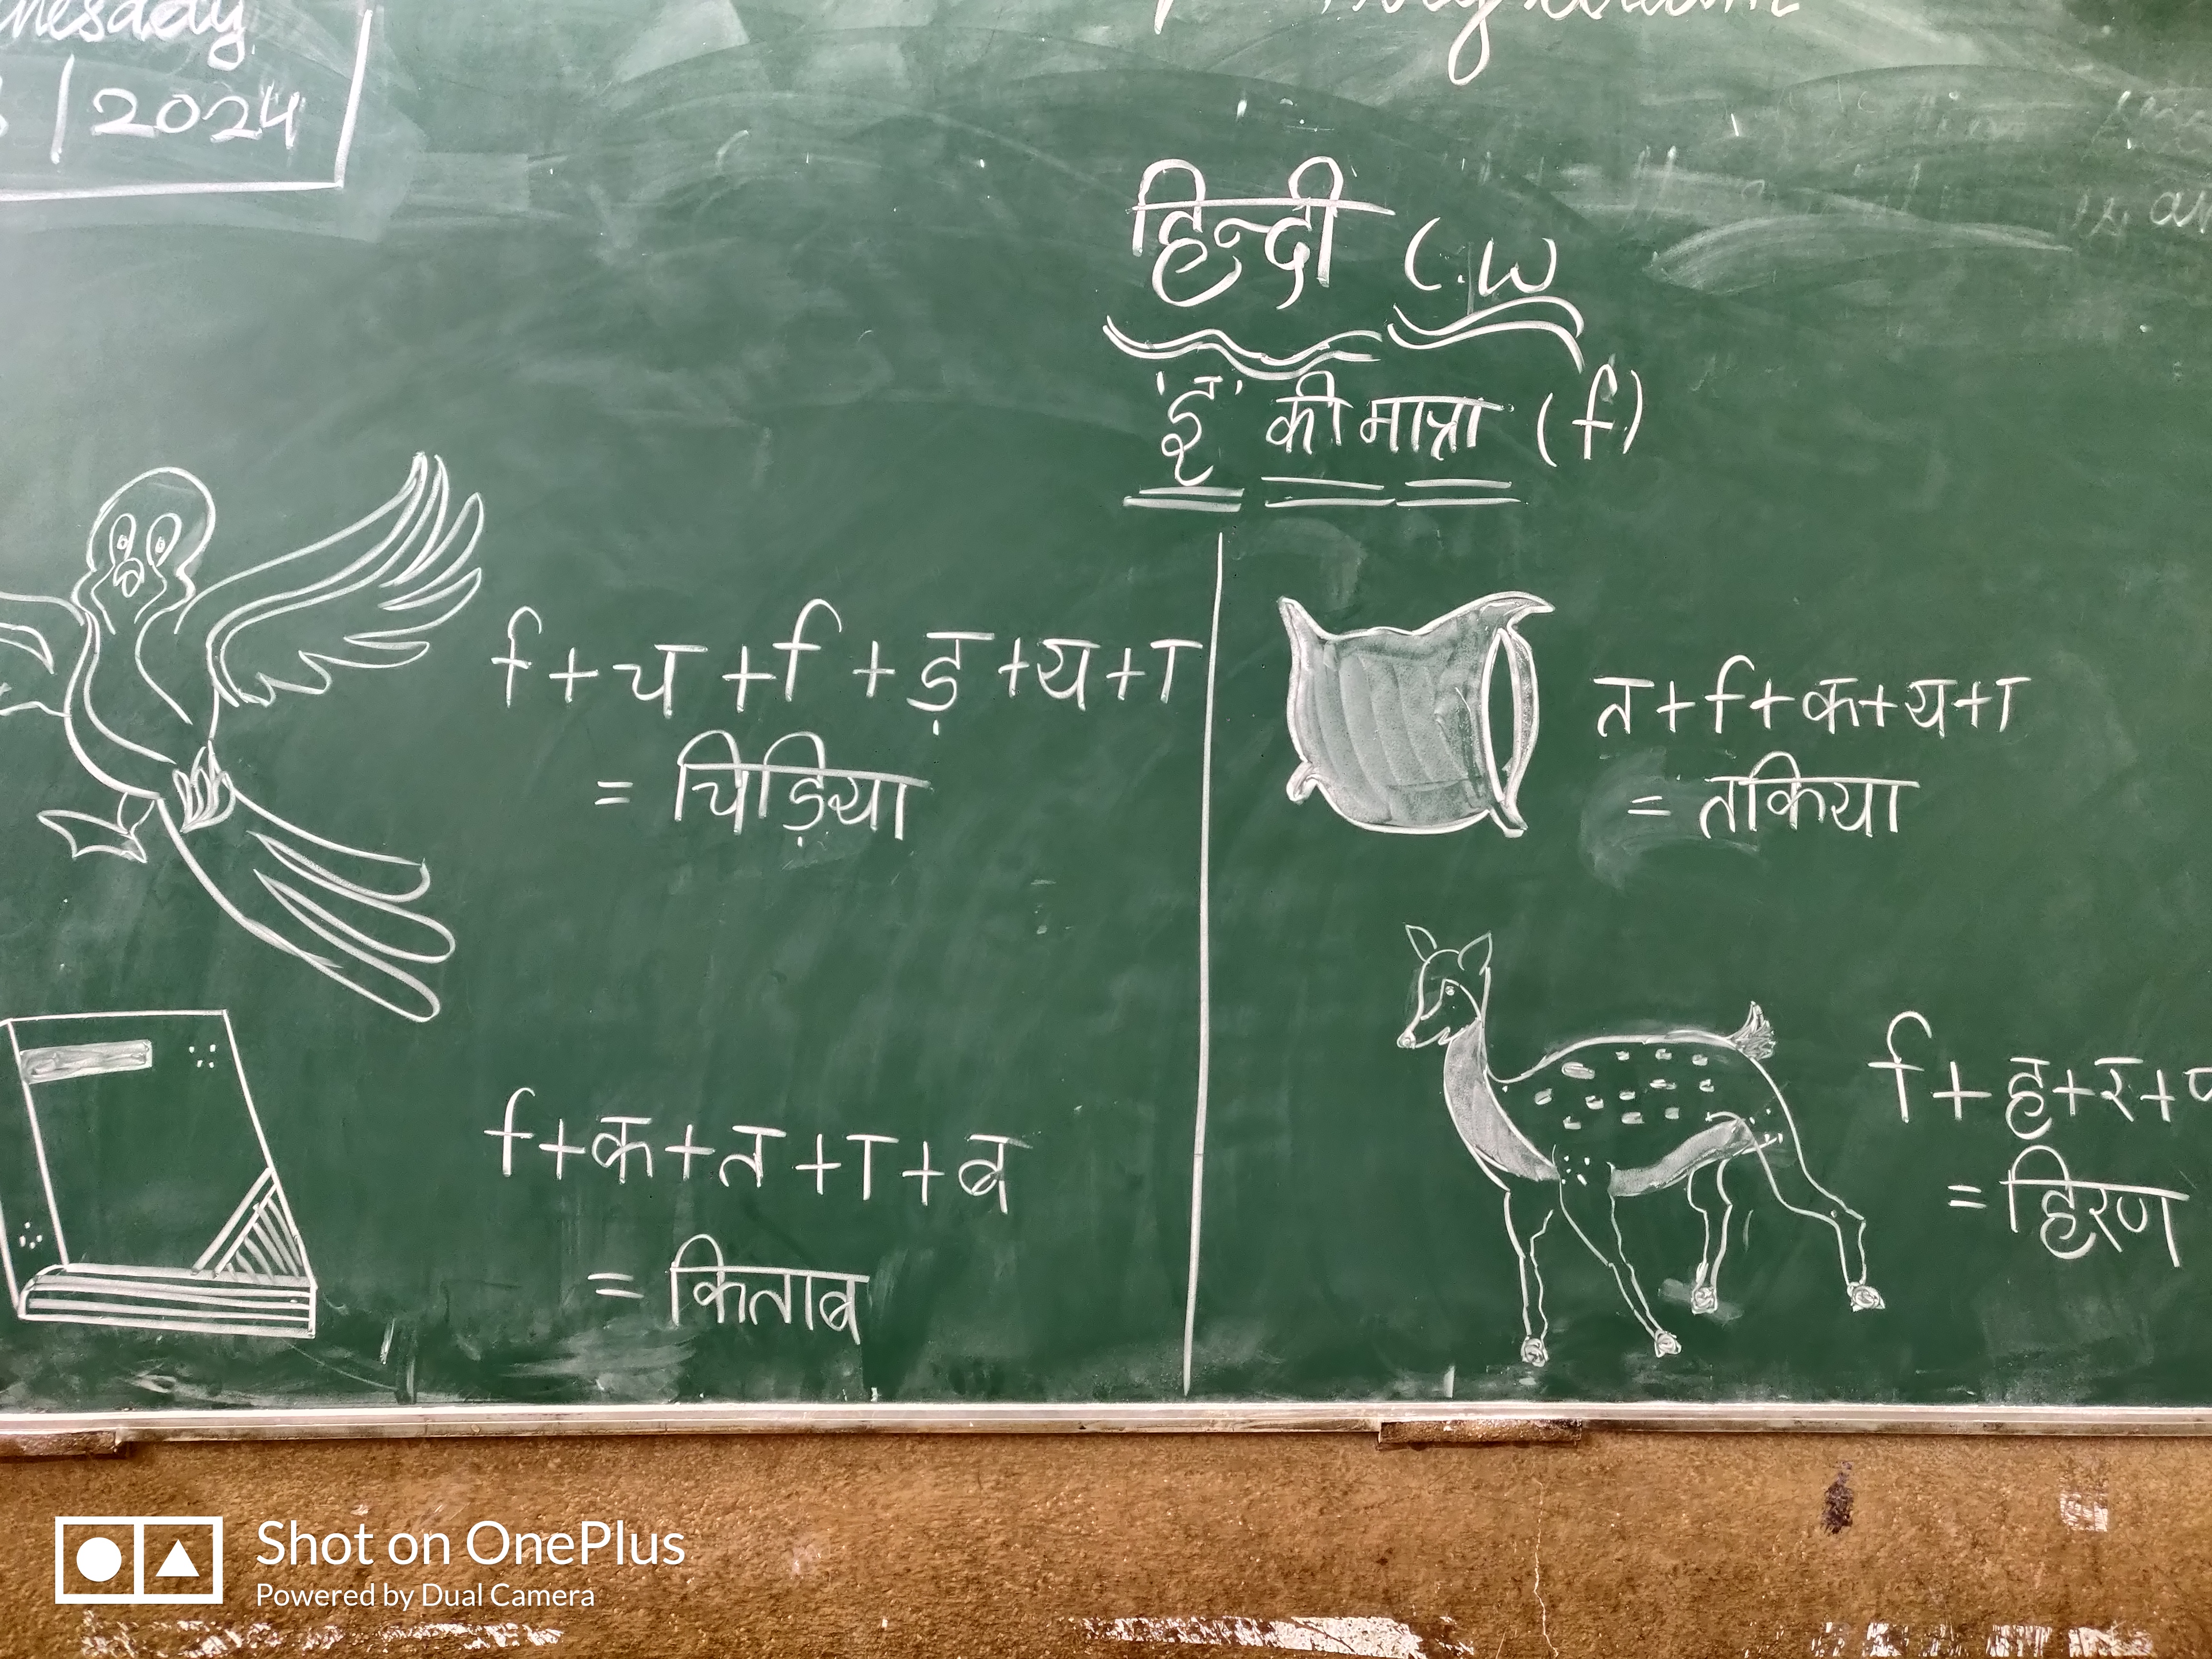 /2024
हिन्दी C.W
'इ' की मात्रा (ि)
ि + च + ि + ड़ + य + ा
= चिड़िया
त + ि + क + य + ा
= तकिया
ि + क + त + ा + ब
= किताब
ि + ह + र +
= हिरण
Shot on OnePlus
Powered by Dual Camera